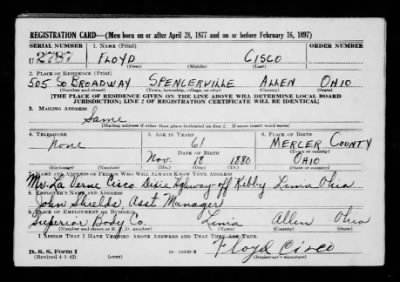 REGISTRATION CARD—(Men born on or after April 28, 1877 and on or before February 16, 1897)
SERIAL NUMBER 1. NAME (Print) ORDER NUMBER
U 2787 FLOYD CISCO
(First) (Middle) (Last)
2. PLACE OF RESIDENCE (Print)
505 So BROADWAY SPENCERVILLE ALLEN OHIO
(Number and street) (Town, township, village, or city) (County) (State)
[THE PLACE OF RESIDENCE GIVEN ON THE LINE ABOVE WILL DETERMINE LOCAL BOARD
JURISDICTION; LINE 2 OF REGISTRATION CERTIFICATE WILL BE IDENTICAL]
3. MAILING ADDRESS
Same
[Mailing address if other than place indicated on line 2. If same insert word same]
4. TELEPHONE 5. AGE IN YEARS 6. PLACE OF BIRTH
None 61 MERCER COUNTY
DATE OF BIRTH (Town or county)
Nov. 18 1880 OHIO
(Exchange) (Number) (Mo.) (Day) (Yr.) (State or country)
7. NAME AND ADDRESS OF PERSON WHO WILL ALWAYS KNOW YOUR ADDRESS
Mr. La Verne Cisco. Dixie Highway off Kibby Lima Ohio
8. EMPLOYER'S NAME AND ADDRESS
John Shields, Asst Manager
9. PLACE OF EMPLOYMENT OR BUSINESS
Superior Body Co. Lima Allen Ohio
(Number and street or R. F. D. number) (Town) (County) (State)
I AFFIRM THAT I HAVE VERIFIED ABOVE ANSWERS AND THAT THEY ARE TRUE.
Floyd Cisco
D. S. S. Form 1
(Revised 4-1-42) (over) (Registrant's signature)